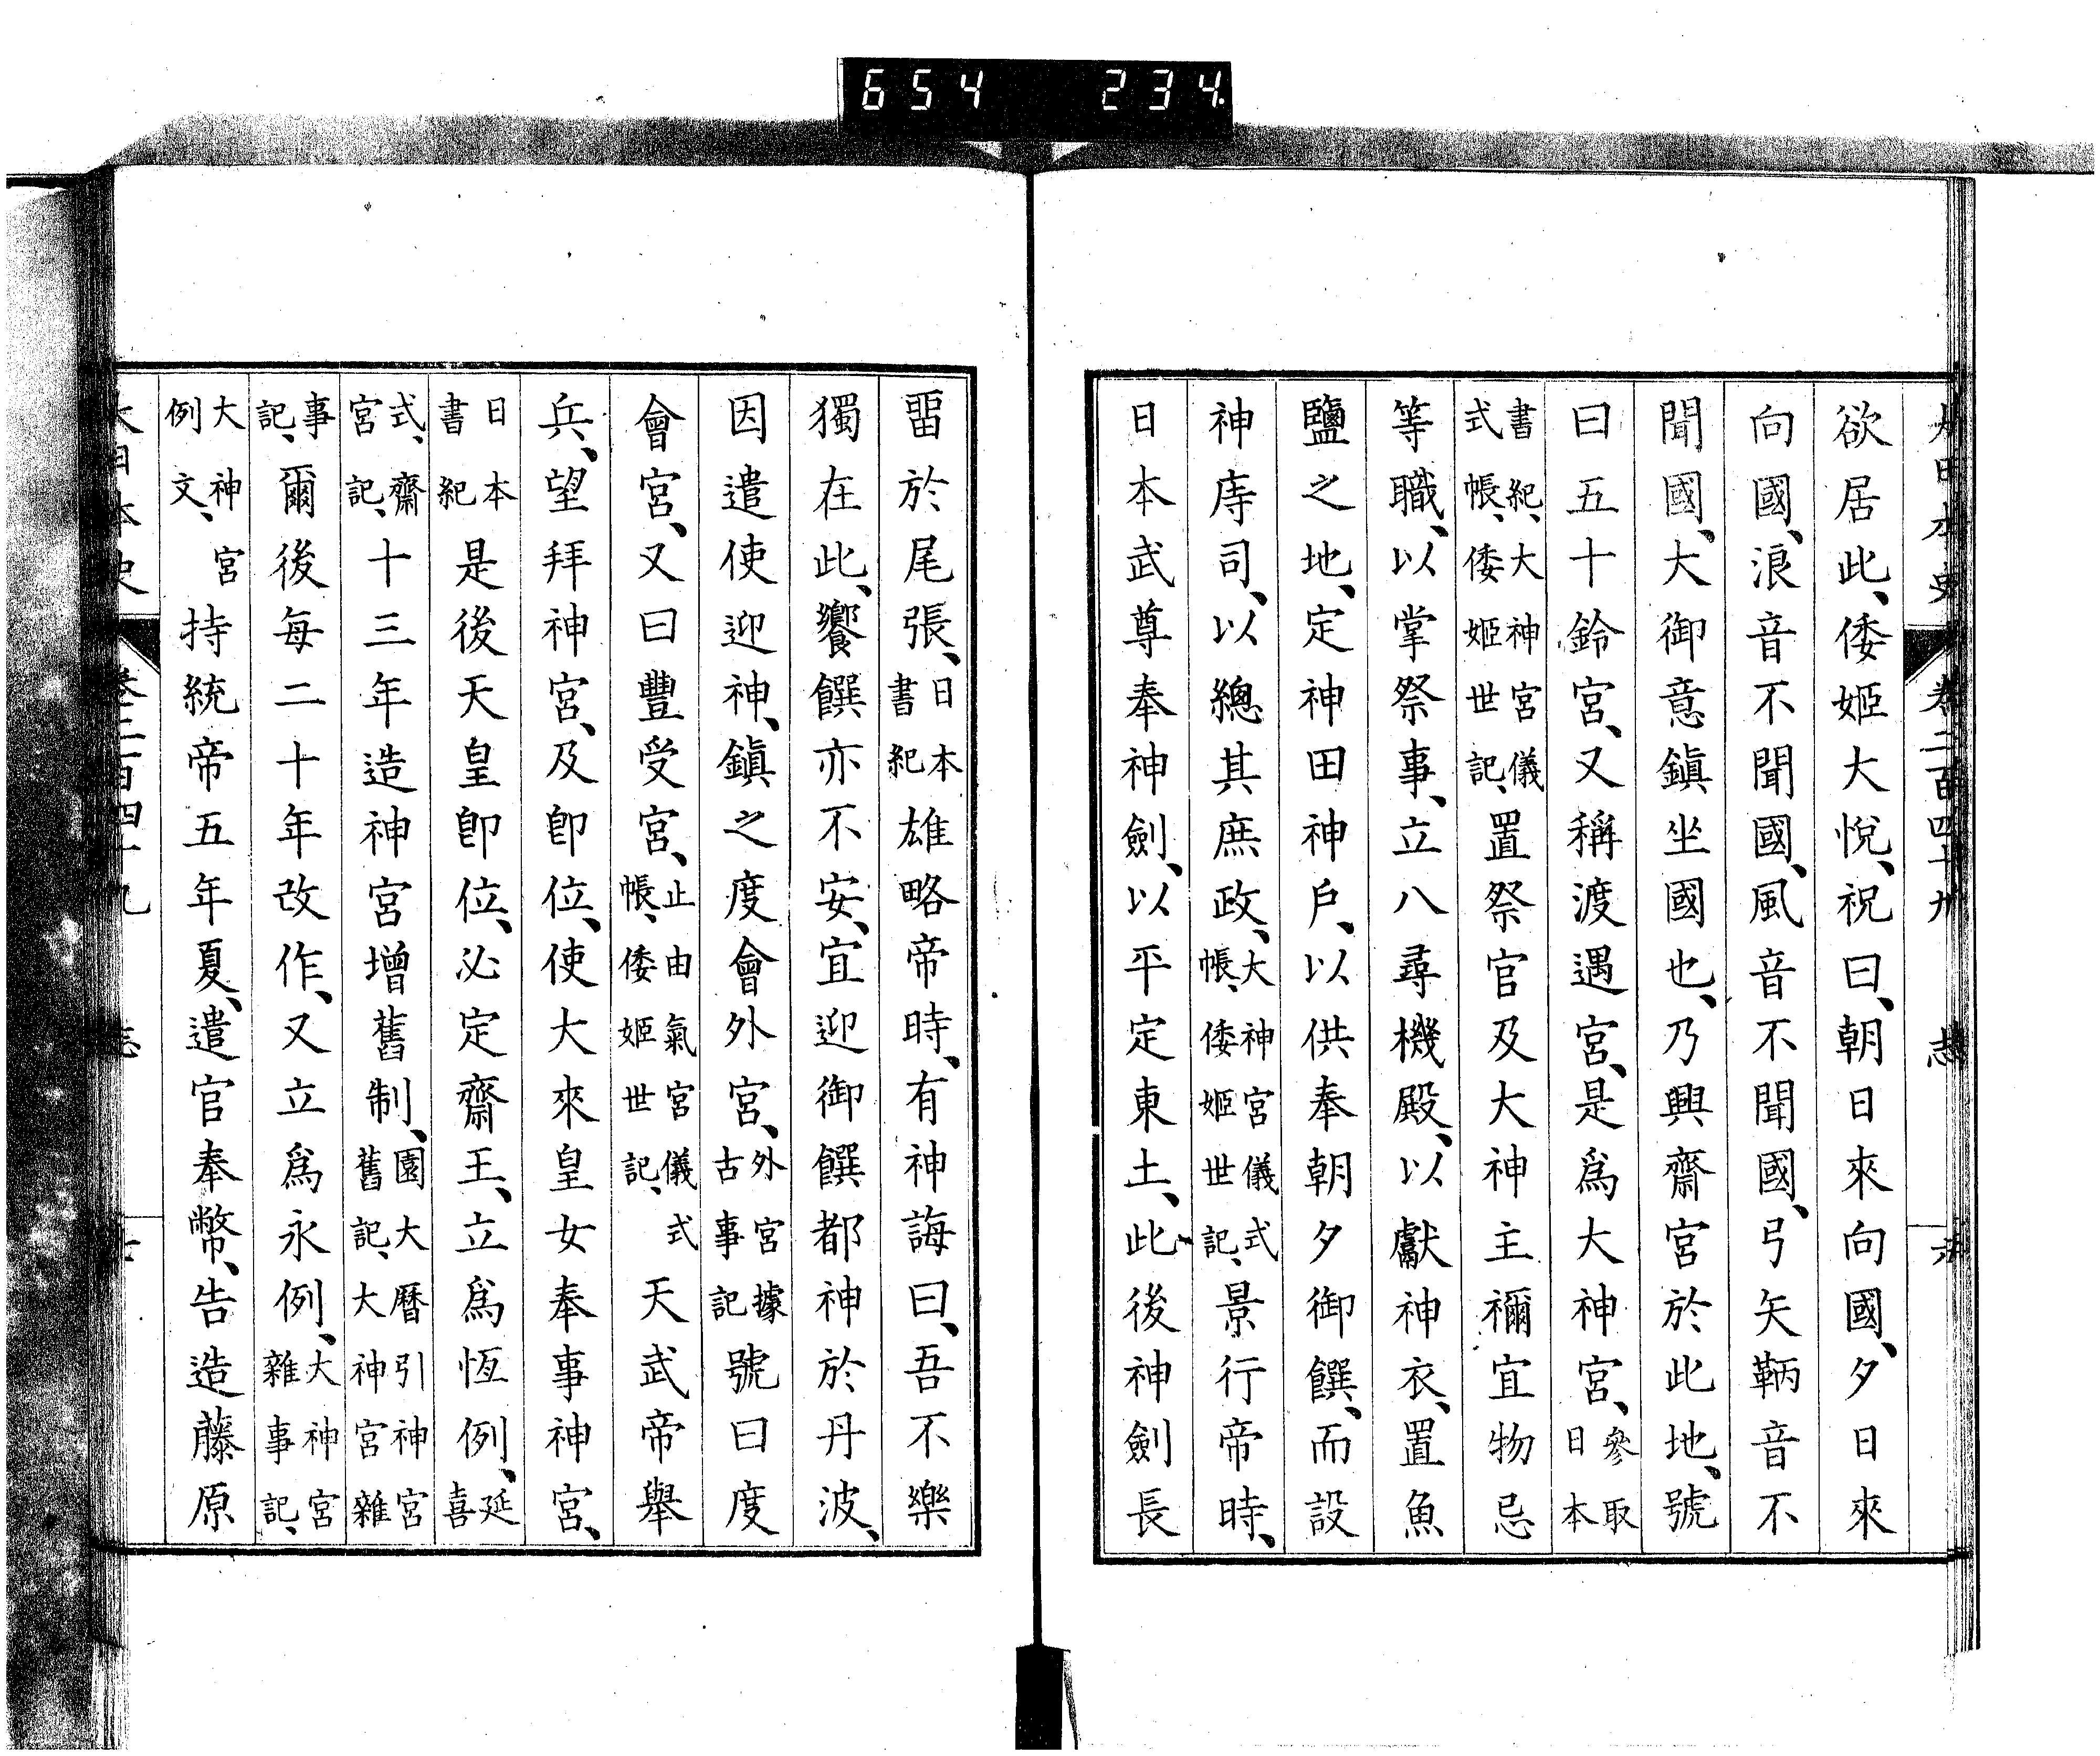 654 234
欲居此、倭姬大悅、祝曰、朝日來向國、夕日來
向國、浪音不聞國、風音不聞國、弓矢鞆音不
聞國、大御意鎭坐國也、乃興齋宮於此地、號
曰五十鈴宮、又稱渡遇宮、是爲大神宮、參取日本
書紀、大神宮儀式帳、倭姬世記、置祭官及大神主禰宜物忌
等職、以掌祭事、立八尋機殿、以獻神衣、置魚
鹽之地、定神田神戶、以供奉朝夕御饌、而設
神庤司、以總其庶政、大神宮儀式帳、倭姬世記、景行帝時、
日本武尊奉神劍、以平定東土、此後神劍長
畱於尾張、日本書紀雄略帝時、有神誨曰、吾不樂
獨在此、饗饌亦不安、宜迎御饌都神於丹波、
因遣使迎神、鎭之度會外宮、外宮據古事記號曰度
會宮、又曰豐受宮、止由氣宮儀式帳、倭姬世記、天武帝舉
兵、望拜神宮、及卽位、使大來皇女奉事神宮、
日本書紀是後天皇卽位、必定齋王、立爲恆例、延喜
式、齋宮記、十三年造神宮增舊制、園大曆引神宮舊記、大神宮雜
事記、爾後每二十年改作、又立爲永例、大神宮雜事記、
大神宮例文、持統帝五年夏、遣官奉幣、告造藤原
大日本史 卷二百四十九 志